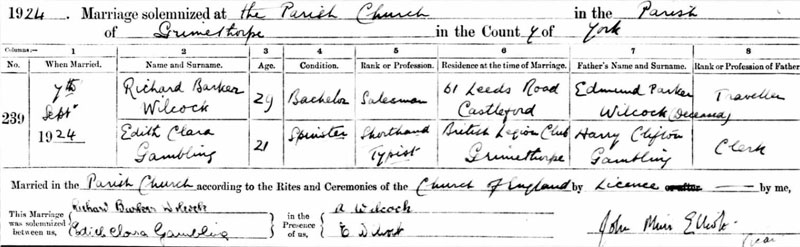 1924. Marriage solemnized at the Parish Church in the Parish
of Grimethorpe in the County of York
Columns:— 1 2 3 4 5 6 7 8
No. When Married. Name and Surname. Age. Condition. Rank or Profession. Residence at the time of Marriage. Father's Name and Surname. Rank or Profession of Father
239 7th Sept 1924 Richard Barker Wilcock 29 Bachelor Salesman 61 Leeds Road Castleford Edmund Parker Wilcock (Deceased) Traveller
Edith Clara Gambling 21 Spinster Shorthand Typist British Legion Club Grimethorpe Harry Clifton Gambling Clerk
Married in the Parish Church according to the Rites and Ceremonies of the Church of England by Licence or after — by me,
This Marriage was solemnized between us, Richard Barker Wilcock in the Presence of us, A Wilcock
Edith Clara Gambling John